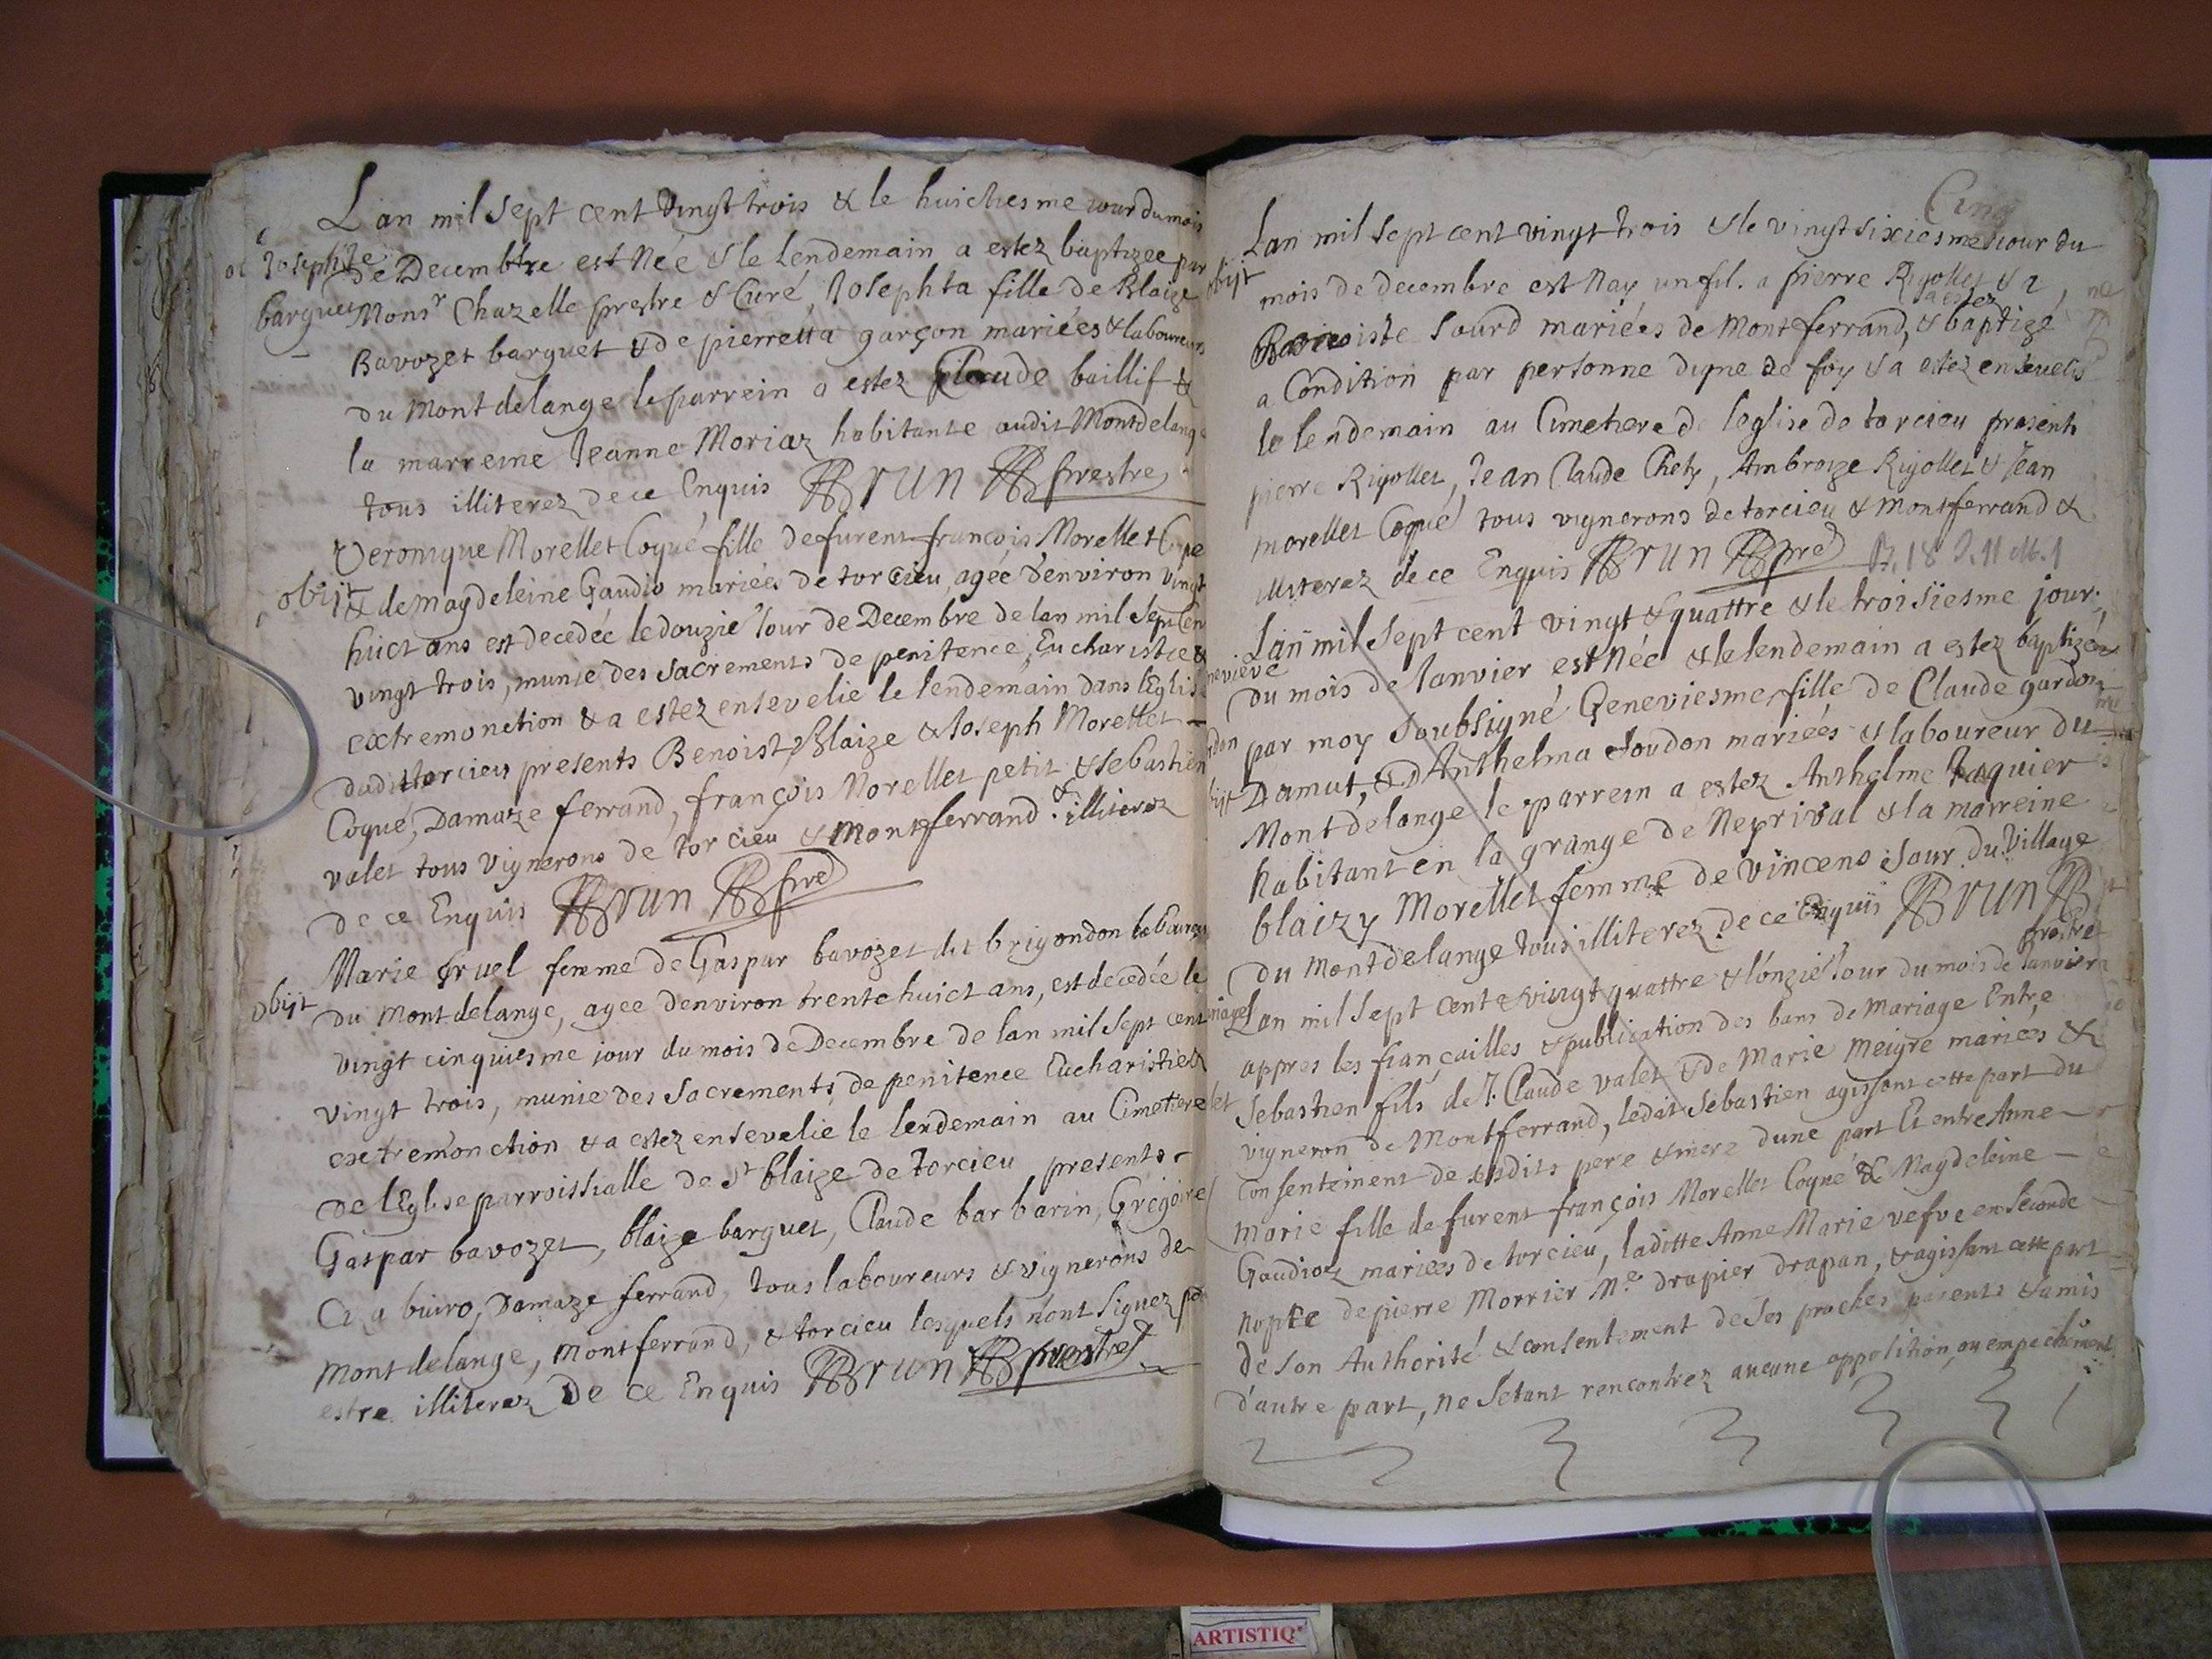 Lan mil sept cent vingt trois & le huictiesme iour du mois
Josephte de Decembre est Née & le lendemain a estez baptizee par
barguet Monsr Chazelle prestre & Curé, Josephta fille de Blaize
Bavozet barguet & de pierretta garçon mariées & laboureurs
du Montdelange le parrein a estez Claude baillif &
la marreine Jeanne Moriaz habitante audit Montdelange
tous illiterez de ce Enquis Brun prestre
Veronique Morellet Coqué fille defurent françois Morellet Coqué
obijt & de Magdeleine Gaudio mariées de torcieu, agée d'environ vingt
huict ans est decedée le douzie Iour de Decembre de lan mil Sept Cen
vingt trois, munie des sacrements de penitence, Eucharistie &
extremonction & a estez ensevelie le lendemain dans l'Eglise
dudit torcieu presents Benoist, Blaize & Joseph Morellet
Coqué, Damaze ferrand, françois Morellet petit & sebastien
valet tous vignerons de torcieu & Montferrand & illiterez
de ce Enquis Brun pre
Marie fruel femme de Gaspar bavozet dit brigondon laboureur
obijt du Montdelange, agee denviron trente huict ans, est decedée le
vingt cinquiesme iour du mois de Decembre de lan mil sept cent
vingt trois, munie des Sacrements de penitence Eucharistie &
extremonction & a estez ensevelie le lendemain au Cimetiere
de l'Eglise parroissialle de St blaize de torcieu presents
Gaspar bavozet, blaize barguet, Claude barbarin, Gregoire
buiro, Damaze ferrand, tous laboureurs & vignerons de
Montdelange, Montferrand, & torcieu lesquels n'ont signez po
estre illiterez de ce Enquis Brun prestre
Cinq
Lan mil sept cent vingt trois & le vingt sixiesme iour du
obijt mois de decembre est Nay un fil. a pierre Rigollet & a
sourd mariées de Montferrand, & a estez baptizé
a Condition par personne digne de foy & a estez ensevelis
le lendemain au Cimetiere de leglise de torcieu present
pierre Rigollet, Jean Claude Chety, Ambroize Rigollet & Jean
morellet Coqué tous vignerons de torcieu & montferrand &
illiterez de ce Enquis Brun pre B. 18 S. 11 M. 1
Lan mil sept cent vingt & quattre & le troisiesme jour
nevieve du mois de Janvier est Née & le lendemain a estez baptizée
par moy soubsigné Geneviesme fille de Claude gardon
Damut, & D'Anthelma soudon mariées & laboureur du
Montdelange le parrein a estez Anthelme Juquier
habitant en la grange de Neprival & la marreine
blaizy Morellet femme de vincens Sour du village
du Montdelange tous illiterez de ce Enquis Brun
prestre
Lan mil sept cent & vingt quattre & l'onzie Iour du mois de Janvier
appres les fiançailles & publication des bans de Mariage Entre
Sebastien fils de J. Claude valet & de Marie Meigre mariées &
vigneron de Montferrand, ledit Sebastien agissant cette part du
consentement de sesdits pere & mere dune part Et entre Anne
Marie fille defurent françois Morellet Coqué & Magdeleine
Gaudioz mariées de torcieu, laditte Anne Marie vefve en seconde
nopce de pierre Morrier Me drapier drapan, & agissant cette part
de son Authorité & consentement de ses proches parents & amis
d'autre part, ne setant rencontrez aucune oppolition, ou empechement
ARTISTIQ